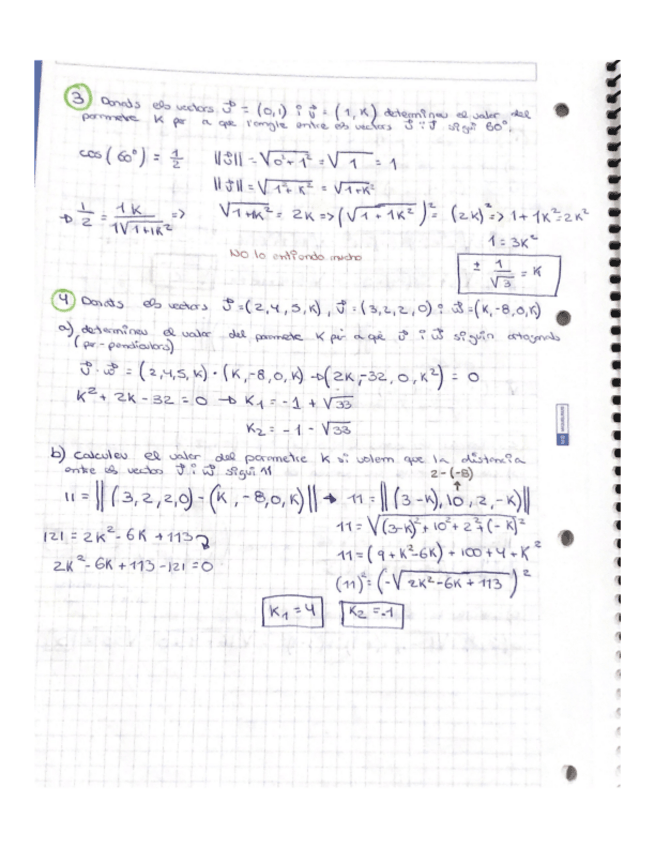 3 Donats els vectors v⃗ = (0,1) i v⃗ = (1, K) determineu el valor del
parametre K per a que l'angle entre els vectors v⃗ i v⃗ sigui 60°.
cos(60°) = 1/2   ||v⃗|| = √(0²+1²) = √1 = 1
||v⃗|| = √(1²+K²) = √(1+K²)
→ 1/2 = 1K / 1√(1+1K²) => √(1+1K²) = 2K => (√(1+1K²))² = (2K)² => 1+1K²=2K²
1 = 3K²
No lo entiendo mucho
± 1/√3 = K
4 Donats els vectors v⃗=(2,4,5,K), v⃗=(3,2,2,0) i w⃗=(K,-8,0,K)
a) determineu el valor del parametre K per a què v⃗ i w⃗ siguin ortogonals
(per-pendiculars)
v⃗·w⃗ = (2,4,5,K)·(K,-8,0,K) → (2K,-32,0,K²) = 0
K²+ 2K-32=0 → K₁ = -1 + √33
K₂ = -1 - √33
b) calculeu el valor del parametre K si volem que la distància
entre els vectos v⃗ i w⃗ sigui 11
2-(-8)
↑
11 = ||(3,2,2,0)-(K,-8,0,K)|| → 11 = ||(3-K), 10, 2, -K)||
11 = √((3-K)²+10²+2²+(-K)²
121 = 2K²-6K+113
11 = (9+K²-6K) + 100+4+K²
2K²-6K+113-121=0
(11)² = (-√(2K²-6K+113))²
K₁ = 4   K₂ = -1